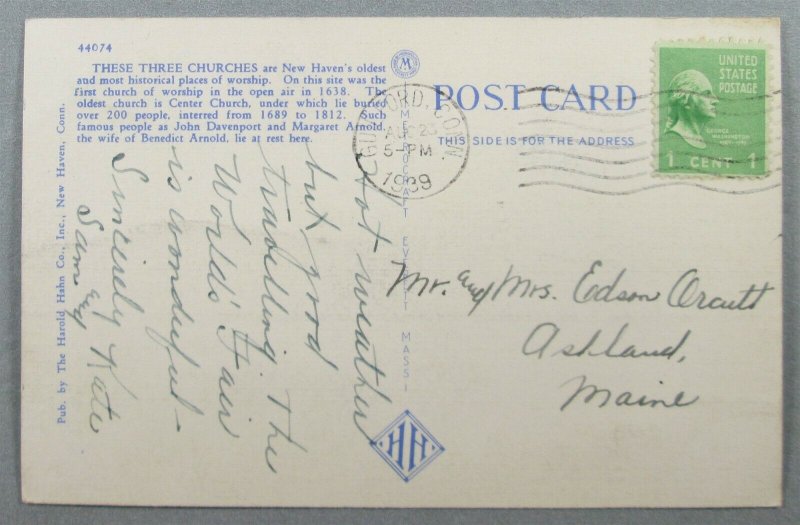 44074
THESE THREE CHURCHES are New Haven's oldest
and most historical places of worship. On this site was the
first church of worship in the open air in 1638. The
oldest church is Center Church, under which lie buried
over 200 people, interred from 1689 to 1812. Such
famous people as John Davenport and Margaret Arnold,
the wife of Benedict Arnold, lie at rest here.
Pub. by The Harold Hahn Co., Inc., New Haven, Conn.
M
POST CARD
THIS SIDE IS FOR THE ADDRESS
GUILFORD, CONN.
AUG 23
5-PM
1939
UNITED
STATES
POSTAGE
GEORGE
WASHINGTON
1789-1797
1 CENT 1
Hot weather
but good
travelling. The
World's Fair
is wonderful -
Sincerely
Sam and Kate
Mr. and Mrs. Edson Orcutt
Ashland,
Maine
HH